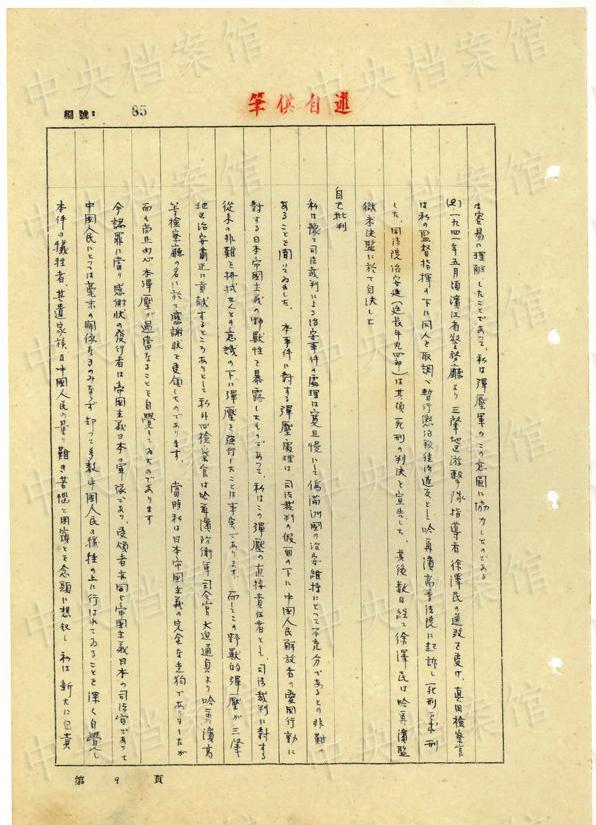 中央档案馆
述自供筆
編號: 85
は容易に理解したことであって、私は彈壓軍のこの意圖に協力したのである
(2) 一九四一年五月頃濱江省警務廳より三肇地区游擊隊指導者徐澤民の送致を受け、真田檢察官
は私の監督指揮の下に同人を取調べ暫行懲治叛徒法違反として哈爾濱高等法院に起訴し死刑を求刑
した。同法院治安庭(追裁手九四郎)は其頃死刑の判決を宣告した、其後数日経て徐澤民は哈爾濱監
獄未決監に於て自決した
自己批判
私は豫て司法裁判による治安事件の處理は寛且慢にして偽滿洲國の治安維持にとって不充分であるとの非難の
あることを聞いてゐました。本事件に對する彈壓處理は司法裁判の假面の下に中國人民解放者の愛國行動に
對する日本帝國主義の野獸性を暴露したものであって、私はこの彈壓の直接責任者として、司法裁判に對する
従来の非難を拂拭せんとの意識の下に彈壓を強行したことは事実であります。而してこの野獸的彈壓が三肇
地区治安肅正に貢献するところありとして私外四檢察官は哈爾濱防衛軍司令官大迫通貞より哈爾濱高
等檢察廳の名に於て感謝状を受領したのであります。當時私は日本帝國主義の完全な走狗でありましたが
而も尚且内心本彈壓が過當なることを自覺してゐたのであります
今認罪に當り感謝状の發行者は帝國主義日本の軍隊であり、受領者亦同じ帝國主義日本の司法官であって
中國人民にとっては毫末の関係なきのみならず却って多数中國人民の犠牲の上に行はれてゐることを深く自覺し
本件の犠牲者、其遺家族及中國人民の量り難き苦惱と困窮とを念頭に想起し私は新たに自責
第 9 頁